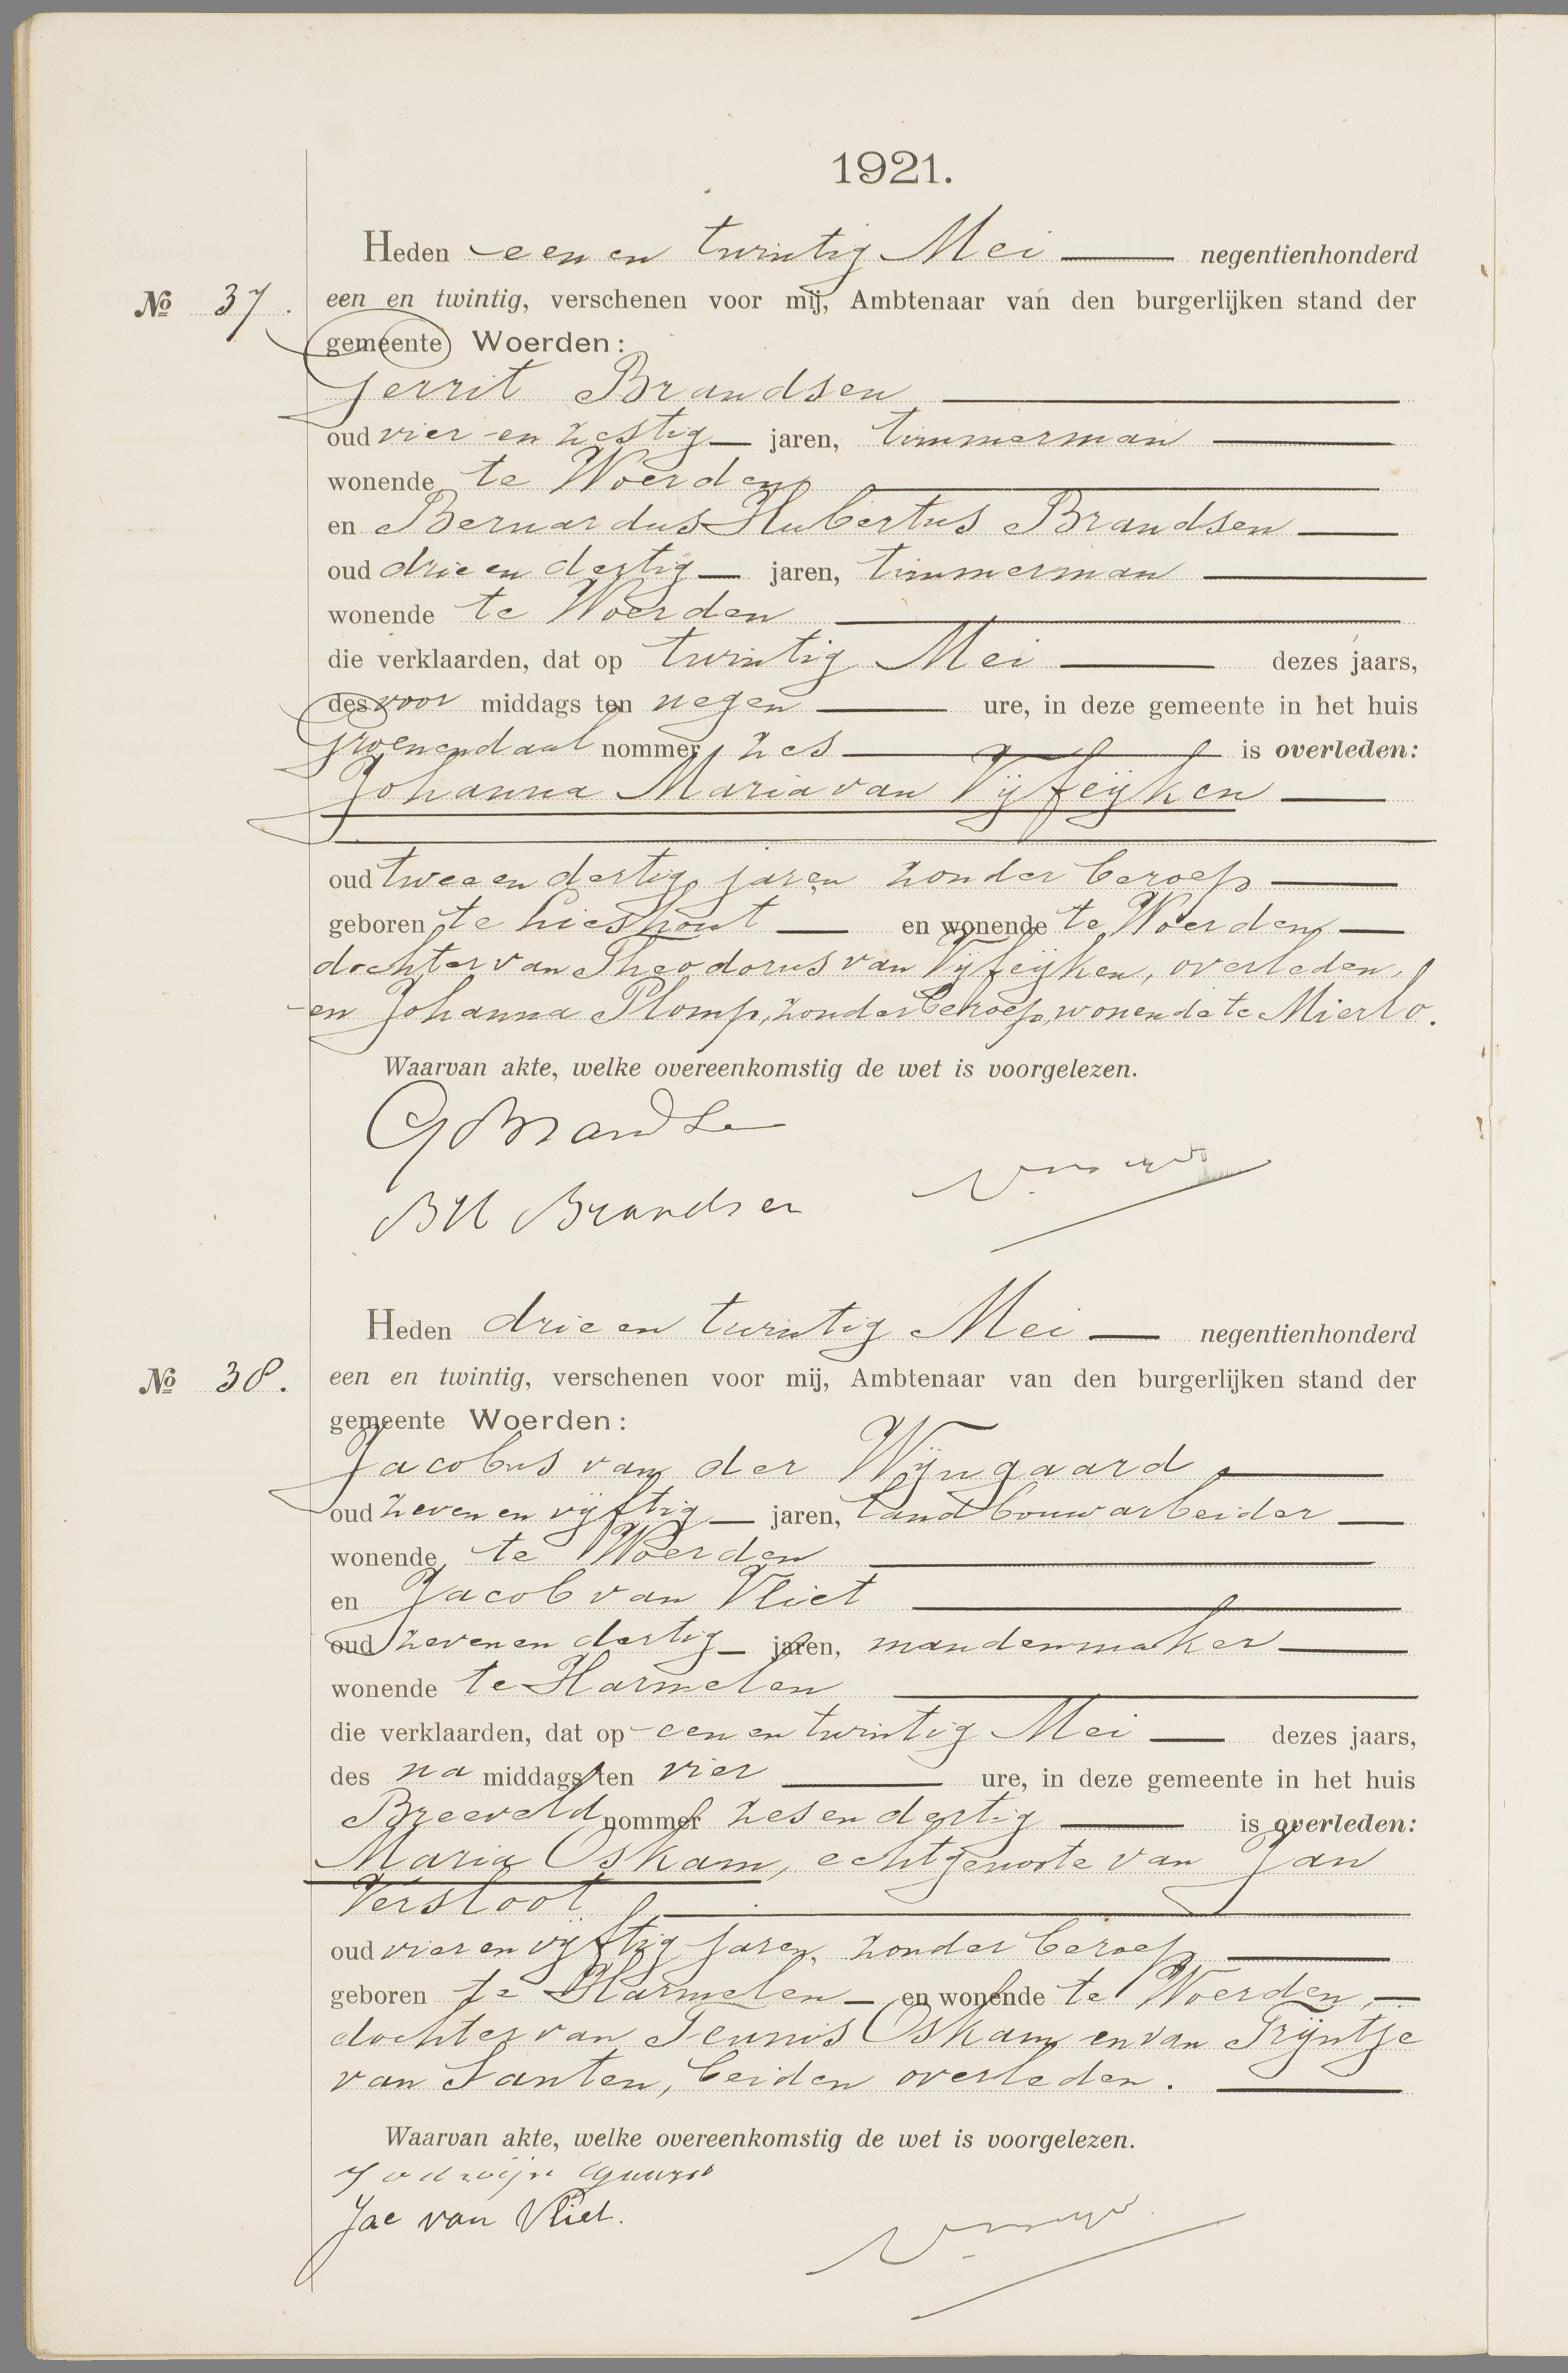 1921.
Heden een en twintig Mei negentienhonderd
No 37. een en twintig, verschenen voor mij, Ambtenaar van den burgerlijken stand der
gemeente Woerden:
Gerrit Brandsen
oud vier en zestig jaren, timmerman
wonende te Woerden
en Bernardus Hubertus Brandsen
oud drie en dertig jaren, timmerman
wonende te Woerden
die verklaarden, dat op twintig Mei dezes jaars,
des voor middags ten negen ure, in deze gemeente in het huis
Groenendaal nommer zes is overleden:
Johanna Maria van Vijfeijken
oud twee en dertig jaren zonder beroep
geboren te Lieshout en wonende te Woerden,
dochter van Theodorus van Vijfeijken, overleden,
en Johanna Plomp, zonder beroep, wonende te Mierlo.
Waarvan akte, welke overeenkomstig de wet is voorgelezen.
G Brandse
BH Brandsen
Heden drie en twintig Mei negentienhonderd
No 38. een en twintig, verschenen voor mij, Ambtenaar van den burgerlijken stand der
gemeente Woerden:
Jacobus van der Wijngaard
oud zeven en vijftig jaren, landbouwarbeider
wonende te Woerden
en Jacob van Vliet
oud zeven en dertig jaren, mandenmaker
wonende te Harmelen
die verklaarden, dat op een en twintig Mei dezes jaars,
des na middags ten vier ure, in deze gemeente in het huis
Breeveld nommer zes en dertig is overleden:
Maria Oskam, echtgenoote van Jan
Versloot
oud vier en vijftig jaren, zonder beroep
geboren te Harmelen en wonende te Woerden,
dochter van Teunis Oskam en van Trijntje
van Santen, beiden overleden.
Waarvan akte, welke overeenkomstig de wet is voorgelezen.
Jac van Vliet.